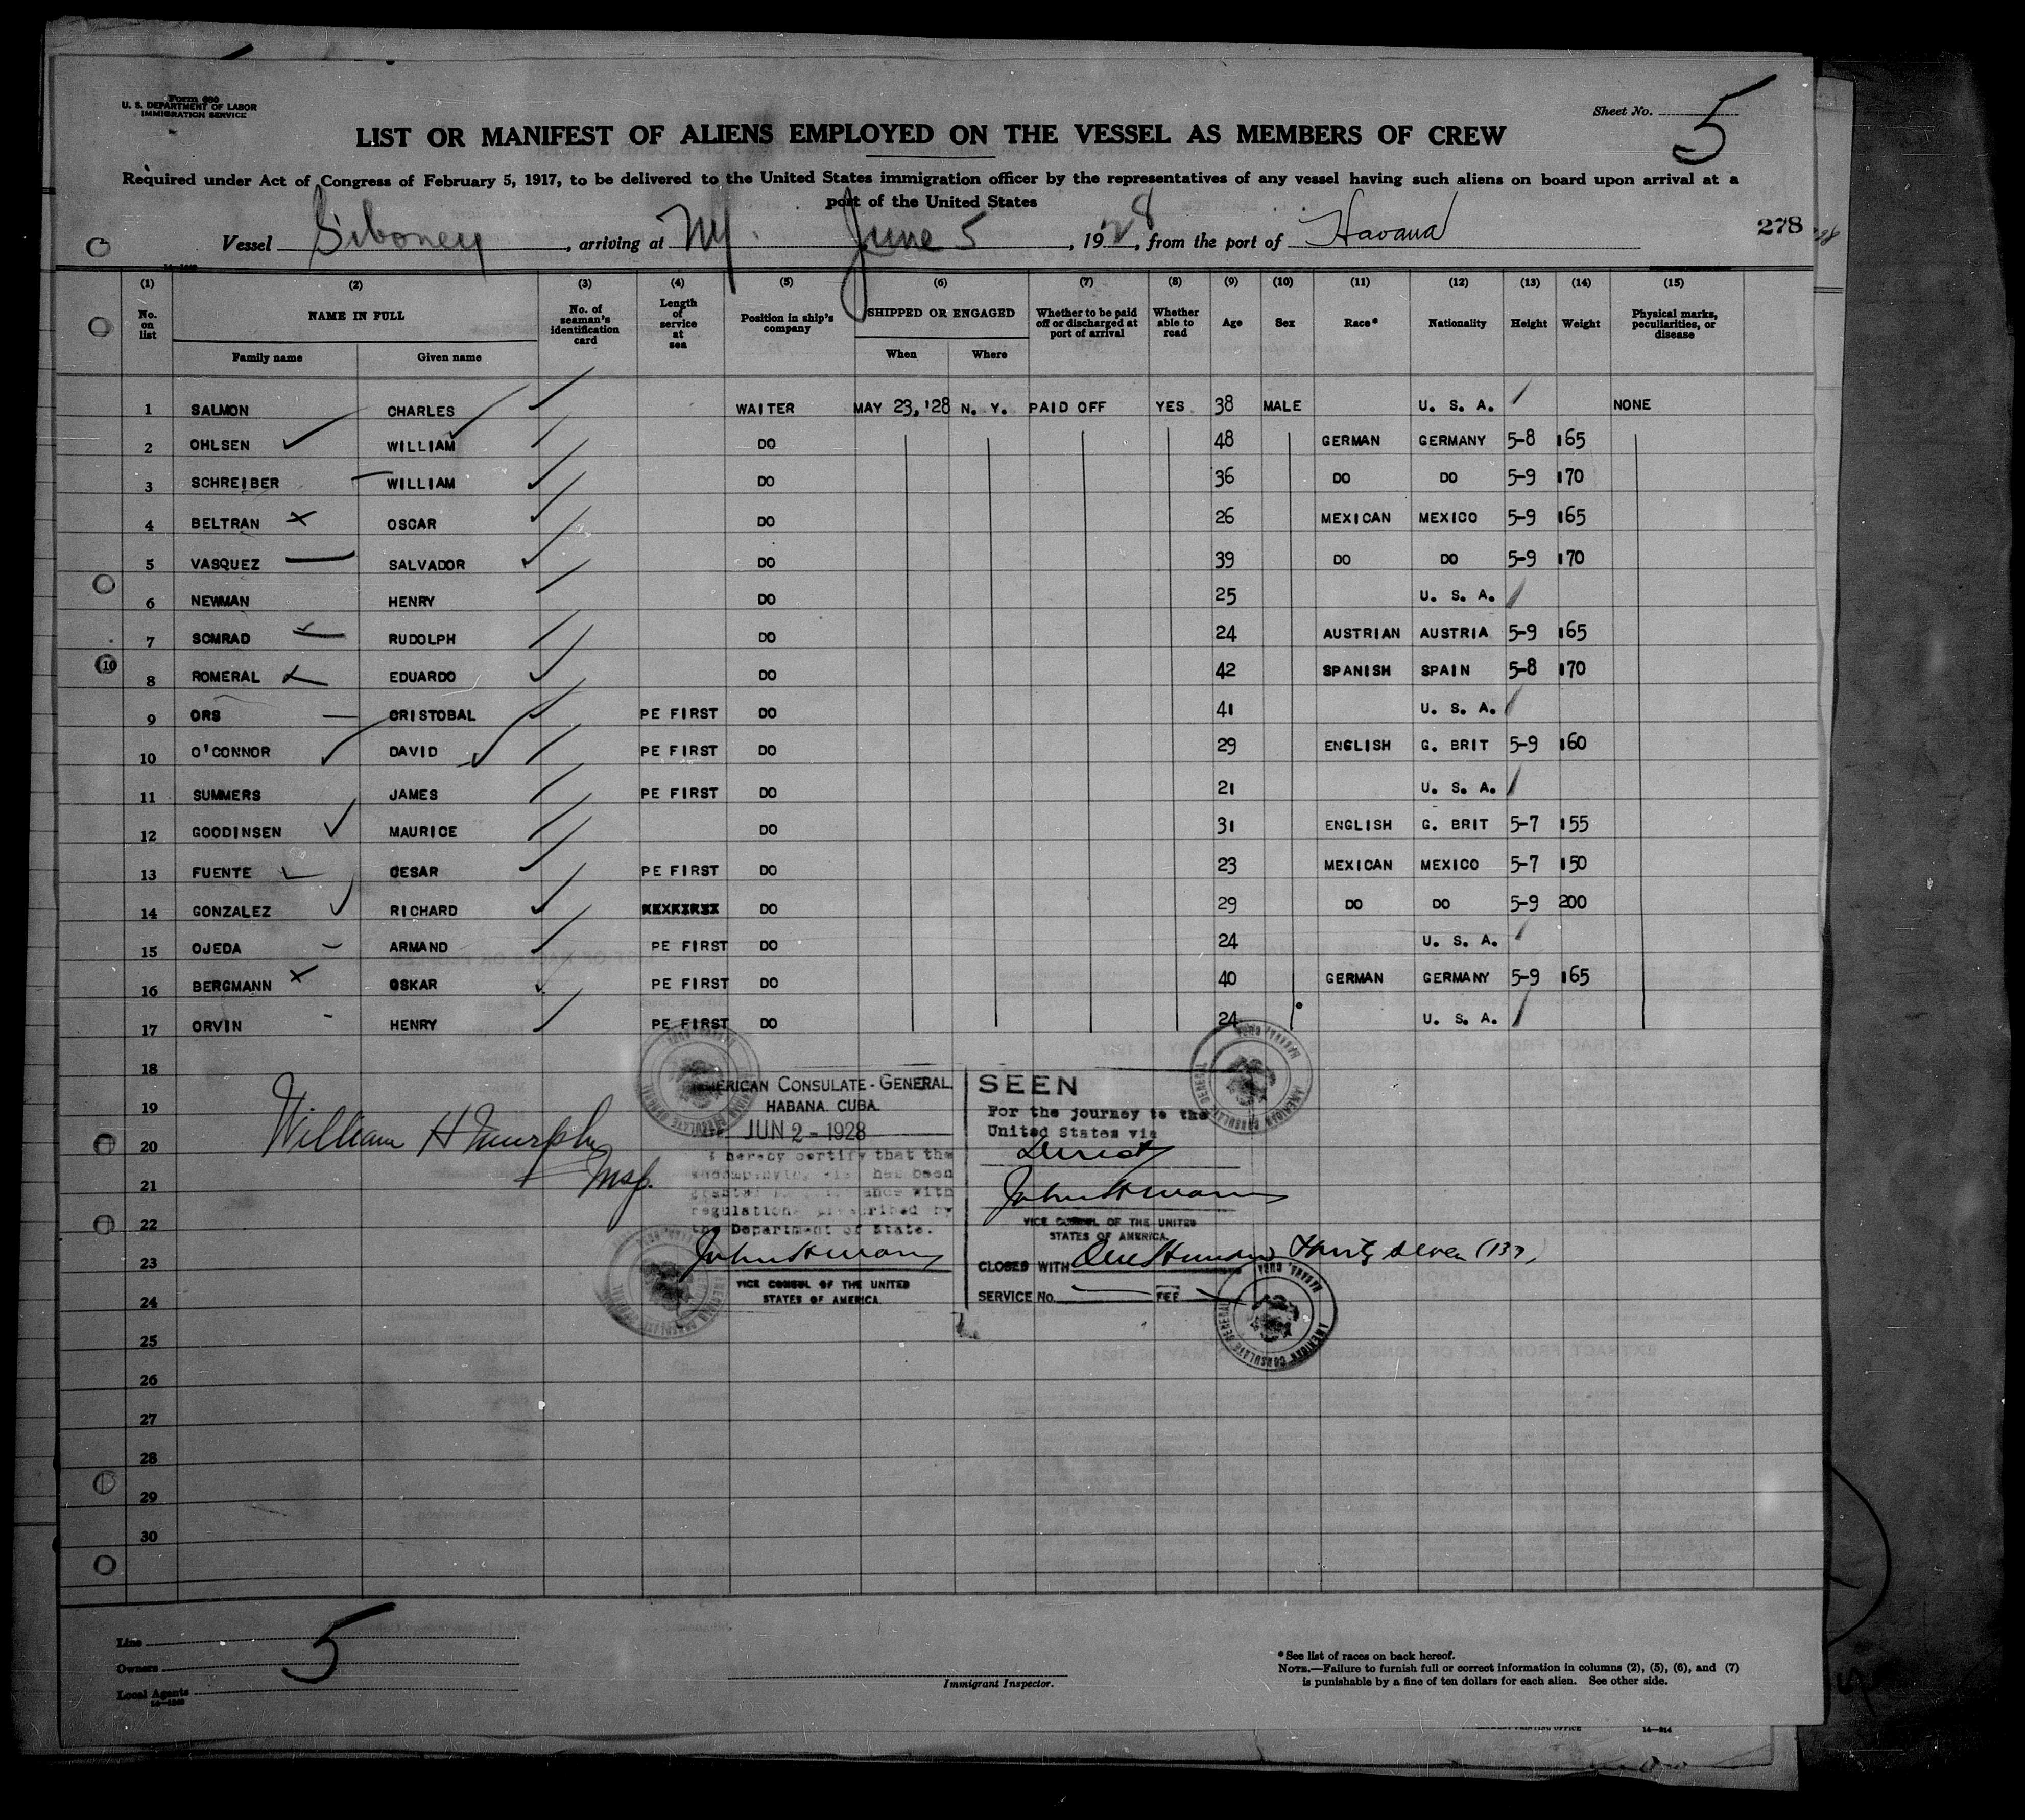 Form 680
U. S. DEPARTMENT OF LABOR
IMMIGRATION SERVICE
Sheet No. 5
LIST OR MANIFEST OF ALIENS EMPLOYED ON THE VESSEL AS MEMBERS OF CREW
Required under Act of Congress of February 5, 1917, to be delivered to the United States immigration officer by the representatives of any vessel having such aliens on board upon arrival at a
port of the United States
Vessel Siboney, arriving at NY. June 5, 1928, from the port of Havana
278
(1) (2) (3) (4) (5) (6) (7) (8) (9) (10) (11) (12) (13) (14) (15)
No. on list NAME IN FULL Family name Given name No. of seaman's identification card Length of service at sea Position in ship's company SHIPPED OR ENGAGED When Where Whether to be paid off or discharged at port of arrival Whether able to read Age Sex Race* Nationality Height Weight Physical marks, peculiarities, or disease
1 SALMON CHARLES WAITER MAY 23, '28 N. Y. PAID OFF YES 38 MALE U. S. A. NONE
2 OHLSEN WILLIAM DO 48 GERMAN GERMANY 5-8 165
3 SCHREIBER WILLIAM DO 36 DO DO 5-9 170
4 BELTRAN OSCAR DO 26 MEXICAN MEXICO 5-9 165
5 VASQUEZ SALVADOR DO 39 DO DO 5-9 170
6 NEWMAN HENRY DO 25 U. S. A.
7 SOMRAD RUDOLPH DO 24 AUSTRIAN AUSTRIA 5-9 165
8 ROMERAL EDUARDO DO 42 SPANISH SPAIN 5-8 170
9 ORS CRISTOBAL PE FIRST DO 41 U. S. A.
10 O'CONNOR DAVID PE FIRST DO 29 ENGLISH G. BRIT 5-9 160
11 SUMMERS JAMES PE FIRST DO 21 U. S. A.
12 GOODINSEN MAURICE DO 31 ENGLISH G. BRIT 5-7 155
13 FUENTE CESAR PE FIRST DO 23 MEXICAN MEXICO 5-7 150
14 GONZALEZ RICHARD DO 29 DO DO 5-9 200
15 OJEDA ARMAND PE FIRST DO 24 U. S. A.
16 BERGMANN OSKAR PE FIRST DO 40 GERMAN GERMANY 5-9 165
17 ORVIN HENRY PE FIRST DO 24 U. S. A.
18
19
20
21
22
23
24
25
26
27
28
29
30
10
William H Murphy
Insp.
AMERICAN CONSULATE-GENERAL
HABANA. CUBA.
JUN 2 - 1928
I hereby certify that the
accompanying visa has been
granted in accordance with
regulations prescribed by
the Department of State.
VICE CONSUL OF THE UNITED
STATES OF AMERICA.
SEEN
For the journey to the
United States via
Direct
VICE CONSUL OF THE UNITED
STATES OF AMERICA.
CLOSED WITH One Hundred Thirty Seven (137)
SERVICE No. FEE
AMERICAN CONSULATE GENERAL HABANA, CUBA
Line
Owners
Local Agents
5
Immigrant Inspector.
*See list of races on back hereof.
NOTE.—Failure to furnish full or correct information in columns (2), (5), (6), and (7)
is punishable by a fine of ten dollars for each alien. See other side.